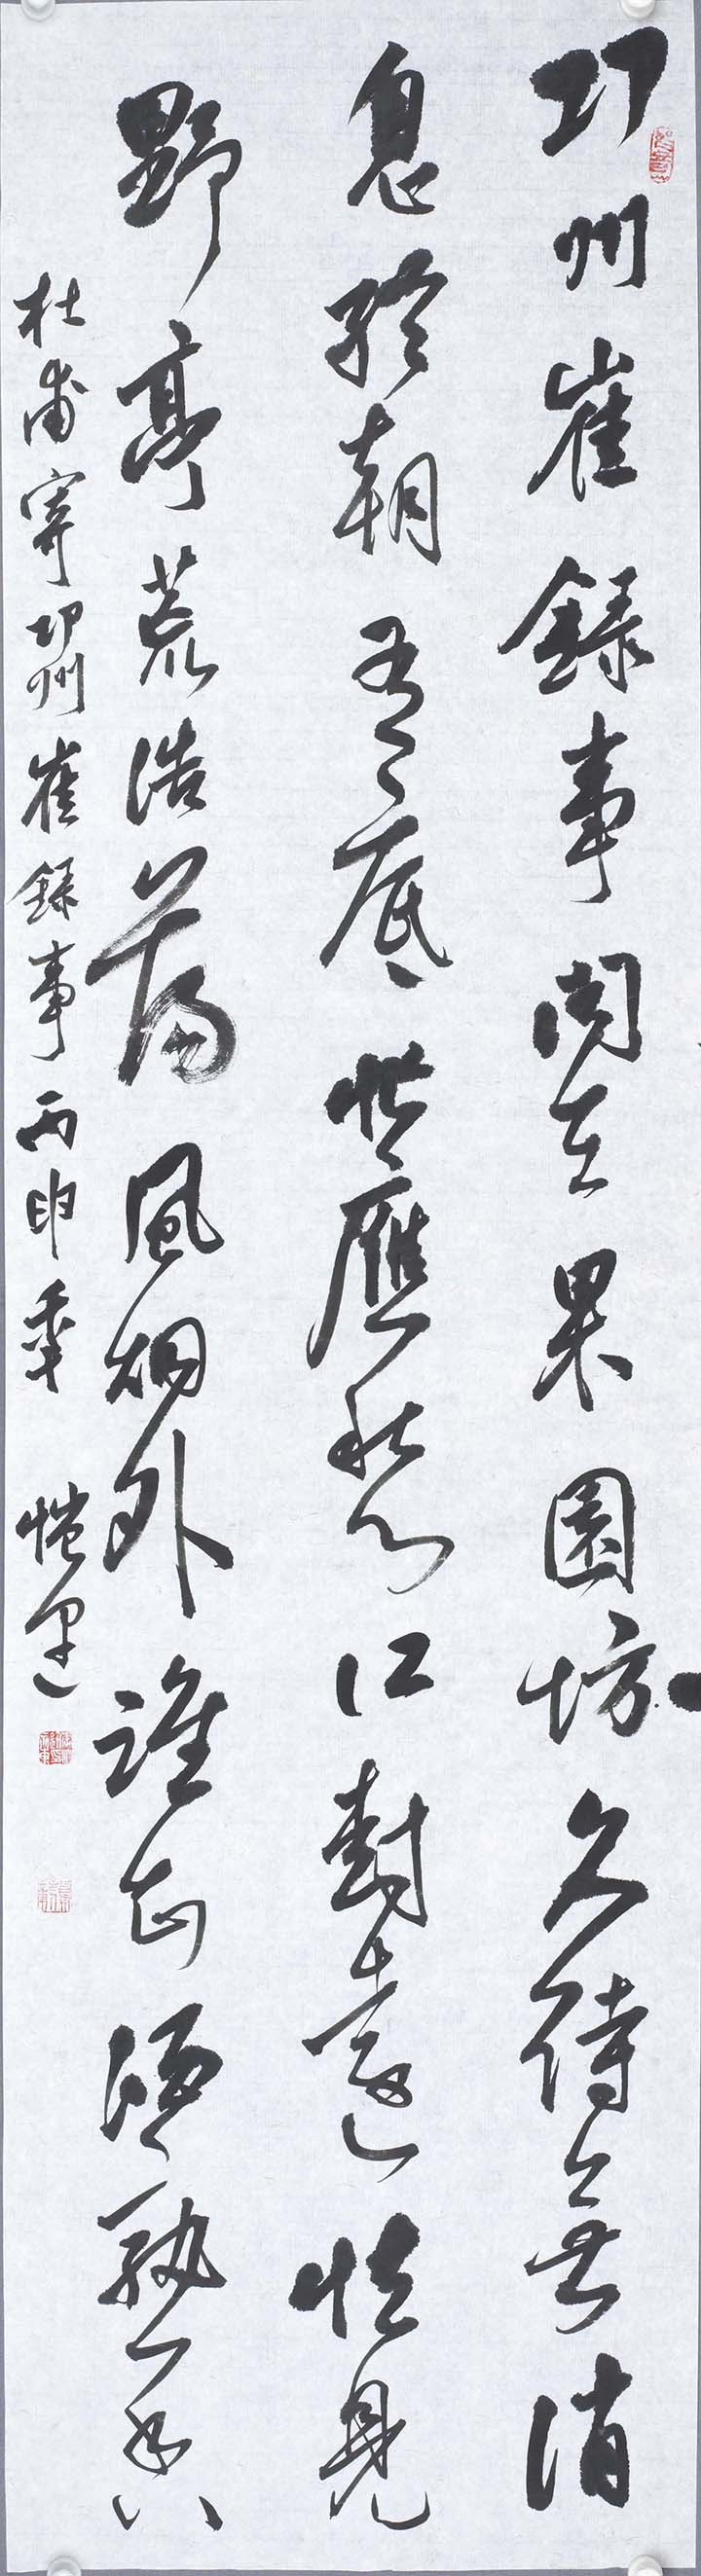 邛州崔錄事聞在果園坊久待無消
息終朝有底忙應愁江樹遠怯見
野亭荒浩蕩風烟外誰知酒熟香
杜甫寄邛州崔錄事丙申年 愷運